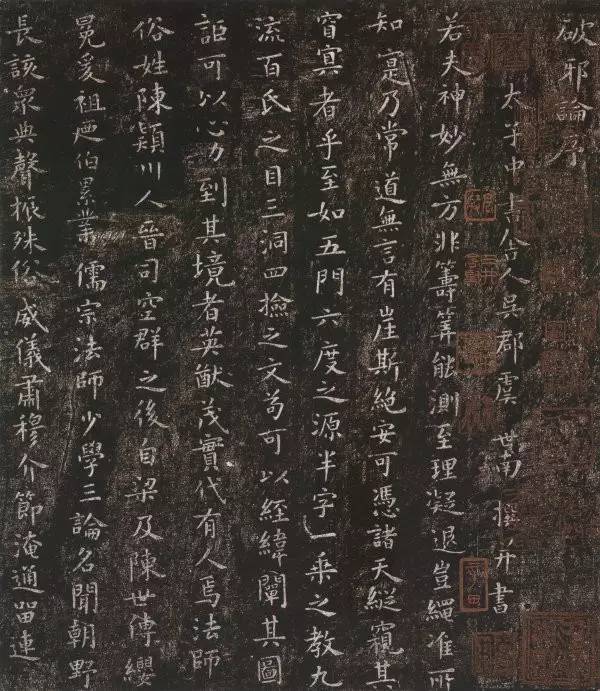 破邪論序
太子中書舍人吳郡虞世南撰并書
若夫神妙無方非籌筭能測至理凝退豈繩准所
知寔乃常道無言有崖斯絕安可憑諸天縱窺其
窅冥者乎至如五門六度之源半字一乘之教九
流百氏之目三洞四撿之文苟可以經緯闡其圖
詎可以心力到其境者英猷茂實代有人焉法師
俗姓陳潁川人晉司空群之後自梁及陳世傳纓
冕爰祖廼伯累業儒宗法師少學三論名聞朝野
長該衆典聲振殊俗威儀肅穆介節淹通留連